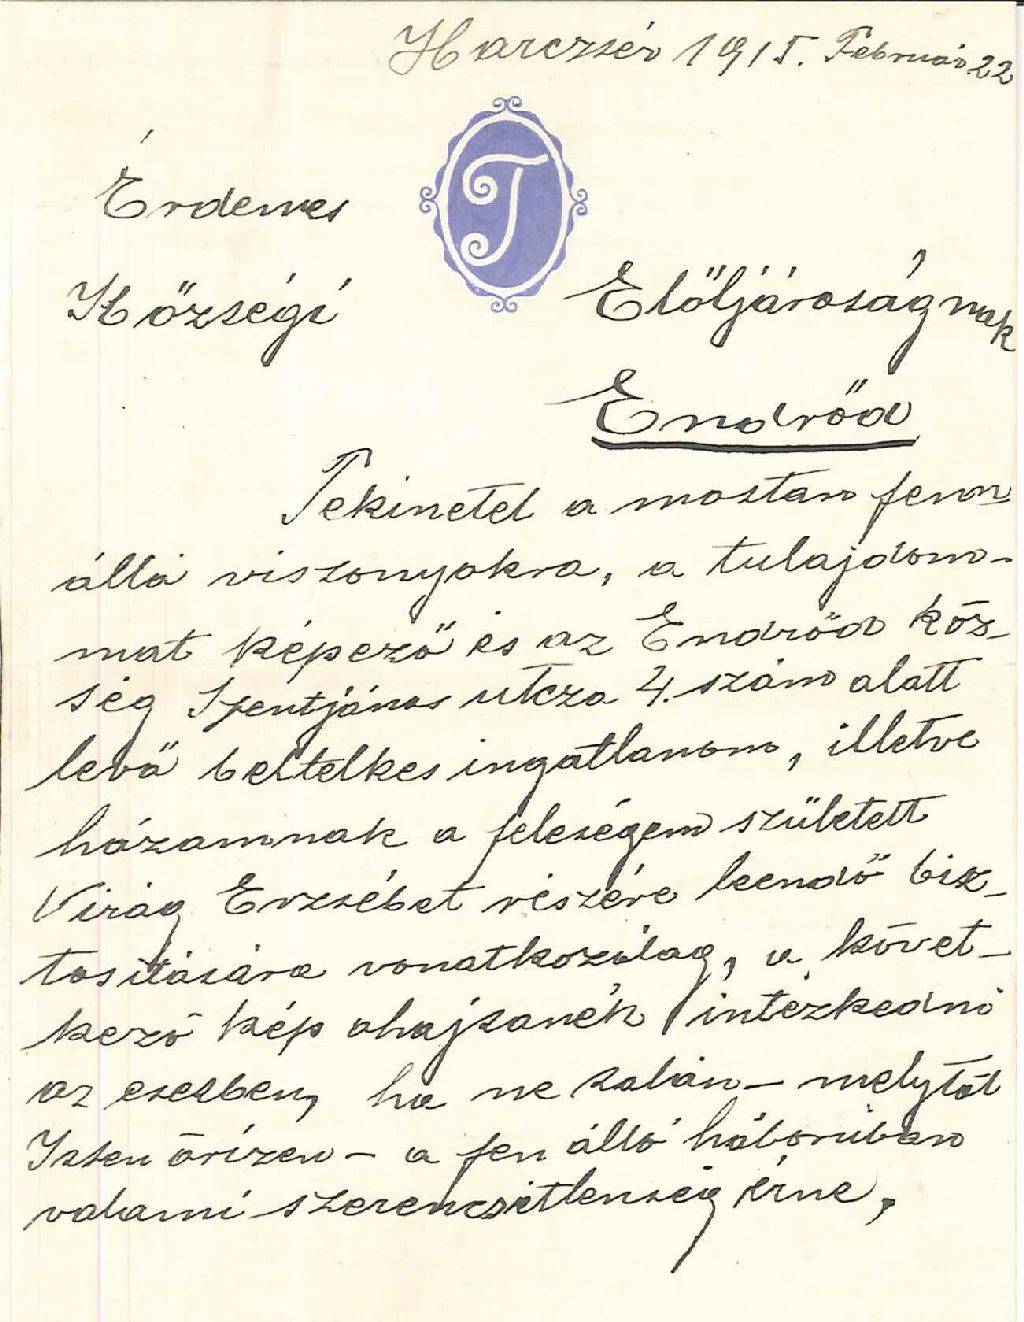 Harczsér 1915. Február 22
T
Érdemes
Községi Előljároságnak
Endrőd
Tekinetel a mostan fenn
álló viszonyokra, a tulajdom-
mat képező és az Endrőd köz-
ség Szentjános utcza 4. szám alatt
levő beltelkes ingatlanom, illetve
házamnak a feleségem született
Virág Erzsébet részére leendő biz-
tositására vonatkozólag, a követ-
kező kép ohajtanék intézkedni
az esetben, ha ne talán - melytől
Isten őrizen - a fen álló háborúban
valami szerencsétlenség érne,